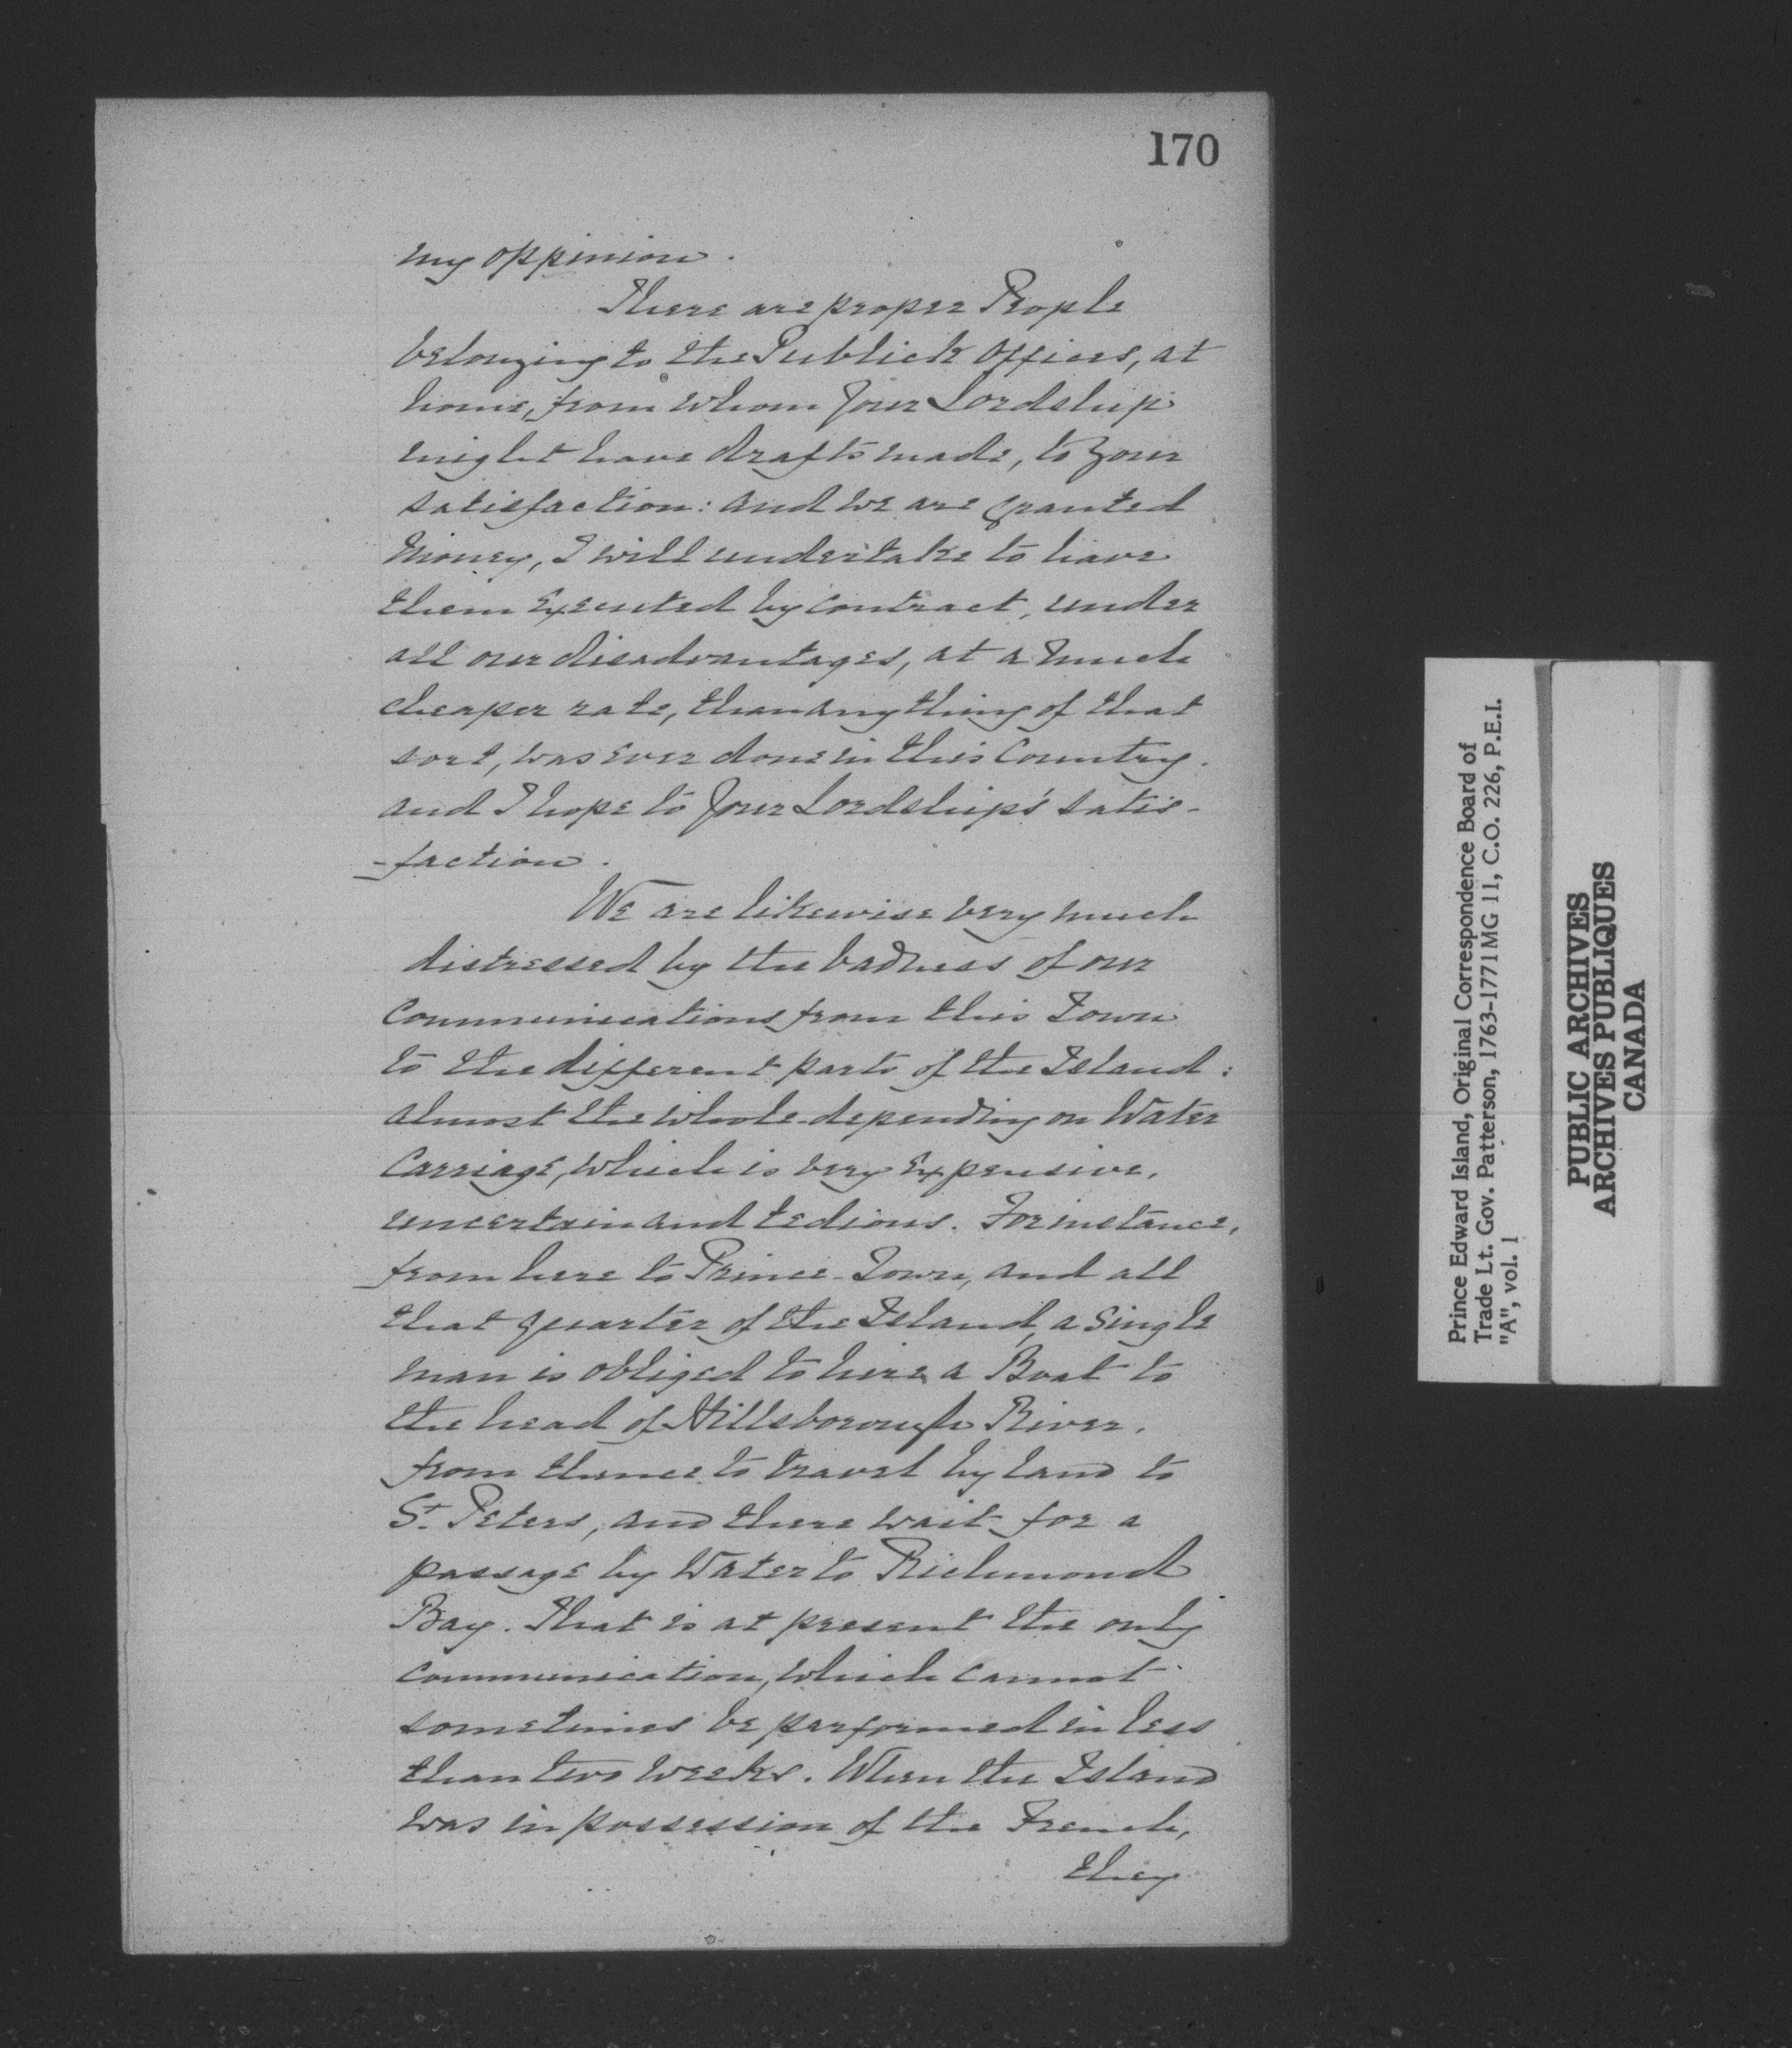 170
my oppinion.
There are proper People
belonging to the Publick Offices, at
home, from whom Your Lordship
might have drafts made, to Your
satisfaction: and we are granted
Money, I will undertake to have
them Executed by Contract, under
all our disadvantages, at a much
cheaper rate, than any thing of that
sort, was ever done in this Country.
and I hope to Your Lordship's satis-
-faction.
We are likewise very much
distressed by the badness of our
Communications from this Town
to the different parts of the Island:
almost the whole depending on Water
Carriage, which is very Expensive,
uncertain and tedious. For instance,
from here to Prince-Town, and all
that quarter of the Island, a Single
man is obliged to hire a Boat to
the head of Hillsborough River,
from thence to travel by land to
St. Peters, and there wait for a
passage by Water to Richmond
Bay. That is at present the only
Communication, which cannot
sometimes be performed in less
than two weeks. When the Island
was in possession of the French,
they
Prince Edward Island, Original Correspondence Board of
Trade Lt. Gov. Patterson, 1763-1771 MG 11, C.O. 226, P.E.I.
"A", vol. 1
PUBLIC ARCHIVES
ARCHIVES PUBLIQUES
CANADA